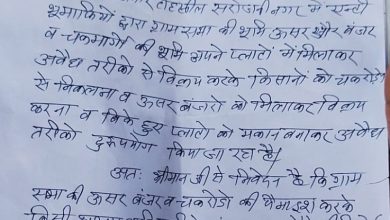 तहसील सरोजनी नगर में
भूमाफियों द्वारा ग्राम सभा की भूमि ऊसर और बंजर
व चकमार्गो की भूमि अपने प्लाटों में मिलाकर
अवैध तरीको से विक्रय करके किसानों को चकरोडो
से निकलना व ऊसर बंजरो को मिलाकर विक्रय
करना व बिके हुए प्लाटो को मकान बनाकर अवैध
तरीको दुरूपयोग किया जा रहा है।
अतः श्रीमान जी से निवेदन है कि ग्राम
सभा की ऊसर बंजर व चकरोडो की पैमाइश करके